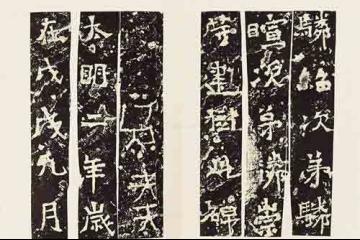 驎紹次弟驎
暄次弟驎崇
等建樹此碑
大明二年歲
在戊戌九月